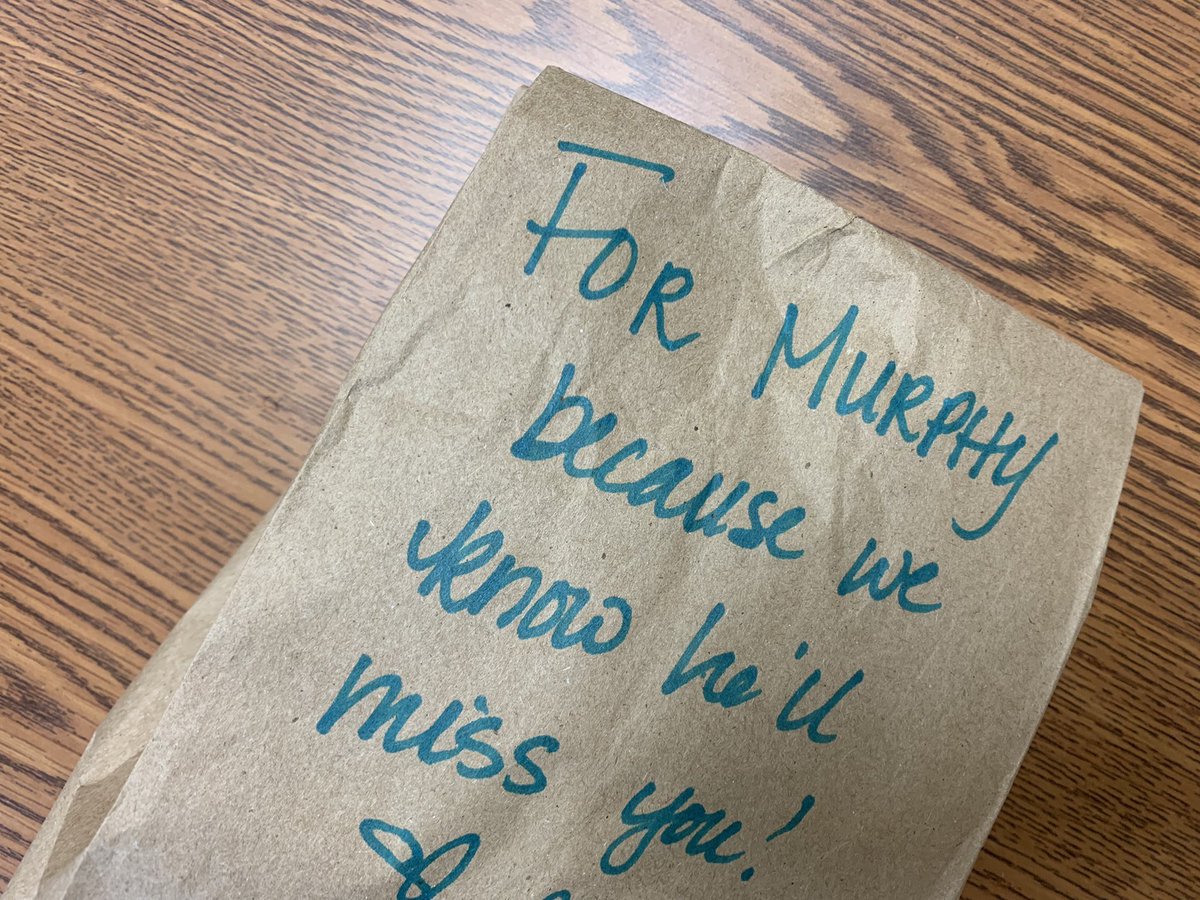 FOR MURPHY
because we
know he'll
miss you!